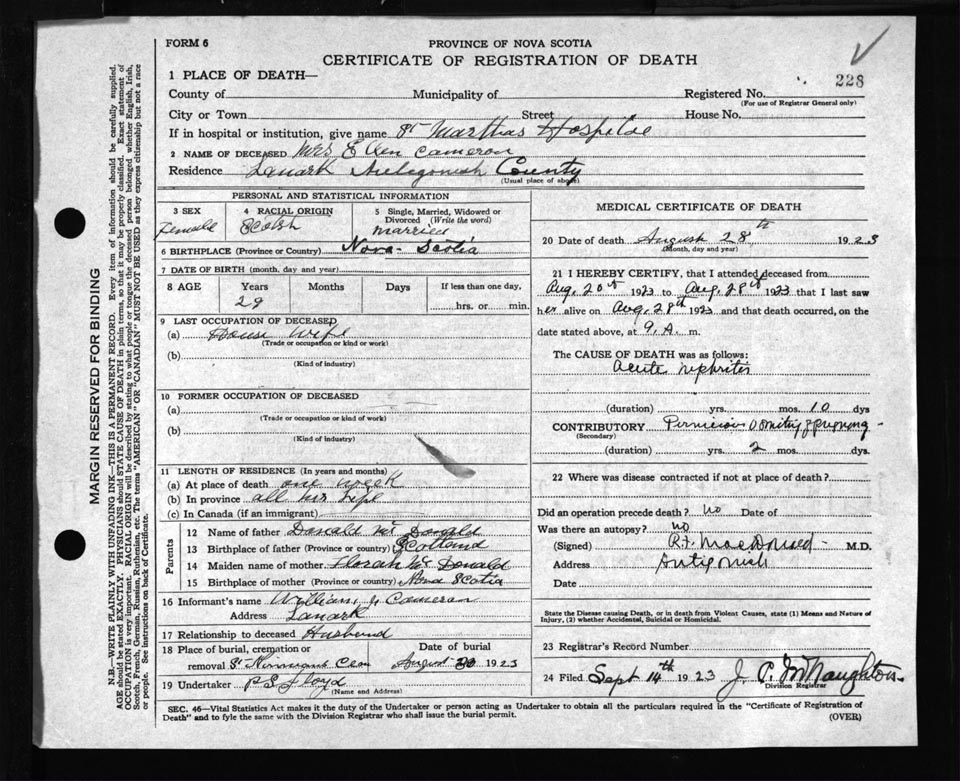 FORM 6
PROVINCE OF NOVA SCOTIA
CERTIFICATE OF REGISTRATION OF DEATH
228
1 PLACE OF DEATH—
County of Municipality of Registered No.
(For use of Registrar General only)
City or Town Street House No.
If in hospital or institution, give name St Marthas Hospital
2 NAME OF DECEASED Mrs Ellen Cameron
Residence Lanark Antigonish County
(Usual place of abode)
PERSONAL AND STATISTICAL INFORMATION
3 SEX Female
4 RACIAL ORIGIN Scotch
5 Single, Married, Widowed or Divorced (Write the word) married
6 BIRTHPLACE (Province or Country) Nova-Scotia
7 DATE OF BIRTH (month, day and year)
8 AGE Years Months Days If less than one day,
29 hrs. or min.
9 LAST OCCUPATION OF DECEASED
(a) House wife
(Trade or occupation or kind or work)
(b)
(Kind of industry)
10 FORMER OCCUPATION OF DECEASED
(a)
(Trade or occupation or kind of work)
(b)
(Kind of industry)
11 LENGTH OF RESIDENCE (In years and months)
(a) At place of death one week
(b) In province all her life
(c) In Canada (if an immigrant)
Parents
12 Name of father Donald McDonald
13 Birthplace of father (Province or country) Scotland
14 Maiden name of mother Florah McDonald
15 Birthplace of mother (Province or country) Nova Scotia
16 Informant's name William J Cameron
Address Lanark
17 Relationship to deceased Husband
18 Place of burial, cremation or removal St Ninians Cem
Date of burial August 30 1923
19 Undertaker P S Floyd
(Name and Address)
MEDICAL CERTIFICATE OF DEATH
20 Date of death August 28th 1923
(Month, day and year)
21 I HEREBY CERTIFY, that I attended deceased from
Aug. 20th 1923 to Aug. 28th 1923 that I last saw
her alive on Aug. 28th 1923 and that death occurred, on the
date stated above, at 9. A. m.
The CAUSE OF DEATH was as follows:
Acute nephritis
(duration) yrs. mos. 10 dys
CONTRIBUTORY Pernicious vomiting of
(Secondary)
(duration) yrs. 2 mos. dys.
22 Where was disease contracted if not at place of death?
Did an operation precede death? No Date of
Was there an autopsy? no
(Signed) R.F. MacDonald - M.D.
Address Antigonish
Date
State the Disease causing Death, or in death from Violent Causes, state (1) Means and Nature of
Injury, (2) whether Accidental, Suicidal or Homicidal.
23 Registrar's Record Number
24 Filed Sept 14th 1923 J. C. McNaughton
Division Registrar
SEC. 46—Vital Statistics Act makes it the duty of the Undertaker or person acting as Undertaker to obtain all the particulars required in the "Certificate of Registration of
Death" and to fyle the same with the Division Registrar who shall issue the burial permit.
(OVER)
MARGIN RESERVED FOR BINDING
N.B.—WRITE PLAINLY WITH UNFADING INK—THIS IS A PERMANENT RECORD. Every item of information should be carefully supplied.
AGE should be stated EXACTLY. PHYSICIANS should STATE CAUSE OF DEATH in plain terms, so that it may be properly classified. Exact statement of
OCCUPATION is very important. RACIAL ORIGIN will be described by stating to what people or tongue the deceased person belonged whether English, Irish,
Scotch, French, German, Russian, Ruthenian, etc. The terms "AMERICAN" OR "CANADIAN" MUST NOT BE USED as they express citizenship but not a race
or people. See instructions on back of Certificate.